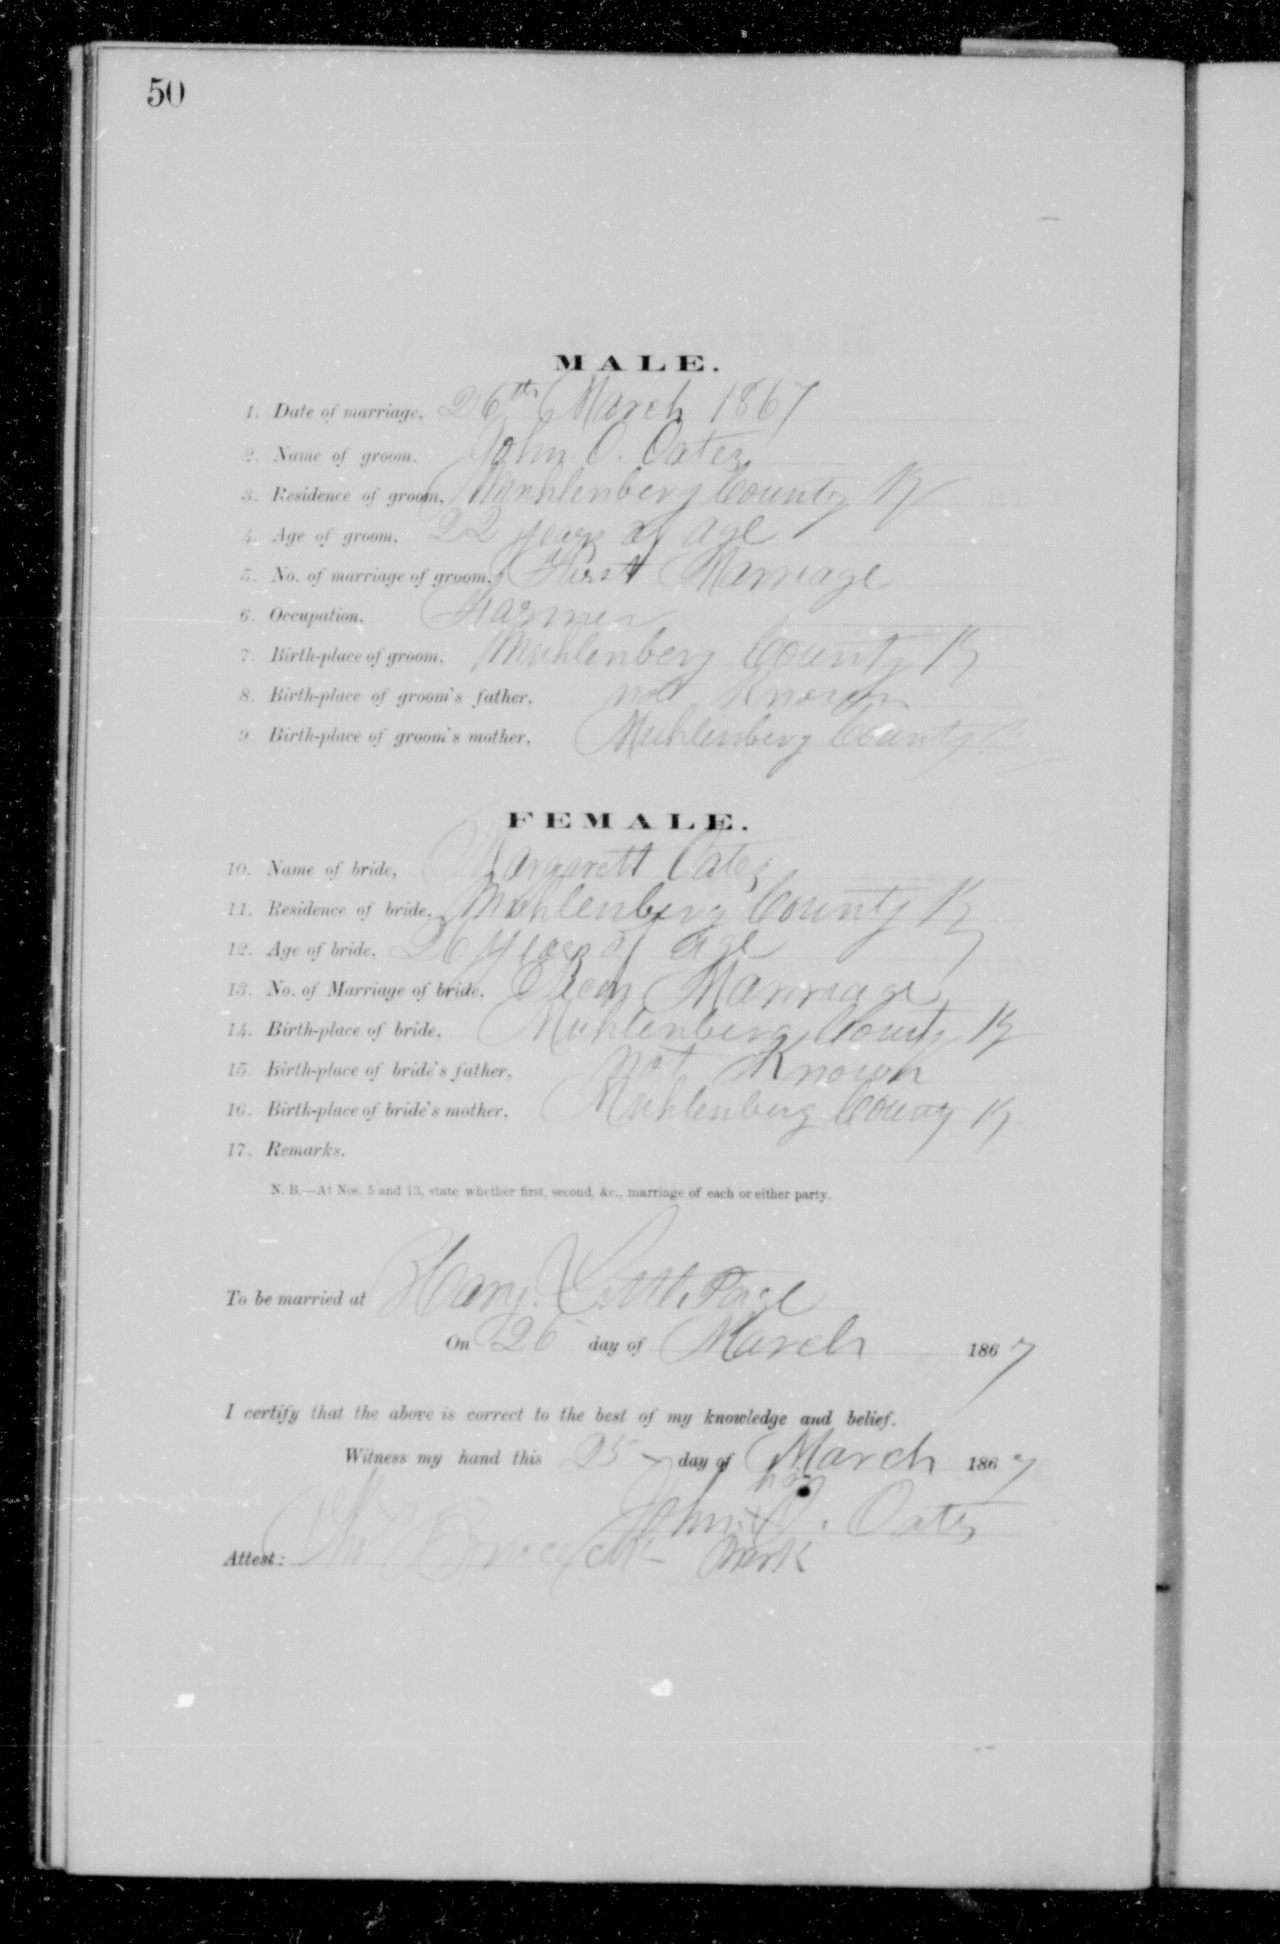 50
MALE.
1. Date of marriage, 26th March 1867
2. Name of groom. John O. Oates
3. Residence of groom, Muhlenberg County Ky
4. Age of groom, 22 years of age
5. No. of marriage of groom, First Marriage
6. Occupation, Farmer
7. Birth-place of groom, Muhlenberg County Ky
8. Birth-place of groom's father, not Known
9. Birth-place of groom's mother, Muhlenberg County
FEMALE.
10. Name of bride, Margarett Oates
11. Residence of bride, Muhlenberg County Ky
12. Age of bride, 26 years of age
13. No. of Marriage of bride, Marriage
14. Birth-place of bride, Muhlenberg County Ky
15. Birth-place of bride's father, not Known
16. Birth-place of bride's mother, Muhlenberg County Ky
17. Remarks.
N. B.—At Nos. 5 and 13, state whether first, second, &c., marriage of each or either party.
To be married at Page
On 26 day of March 1867
I certify that the above is correct to the best of my knowledge and belief.
Witness my hand this 25 day of March 1867
his
John x O. Oates
Attest: mark